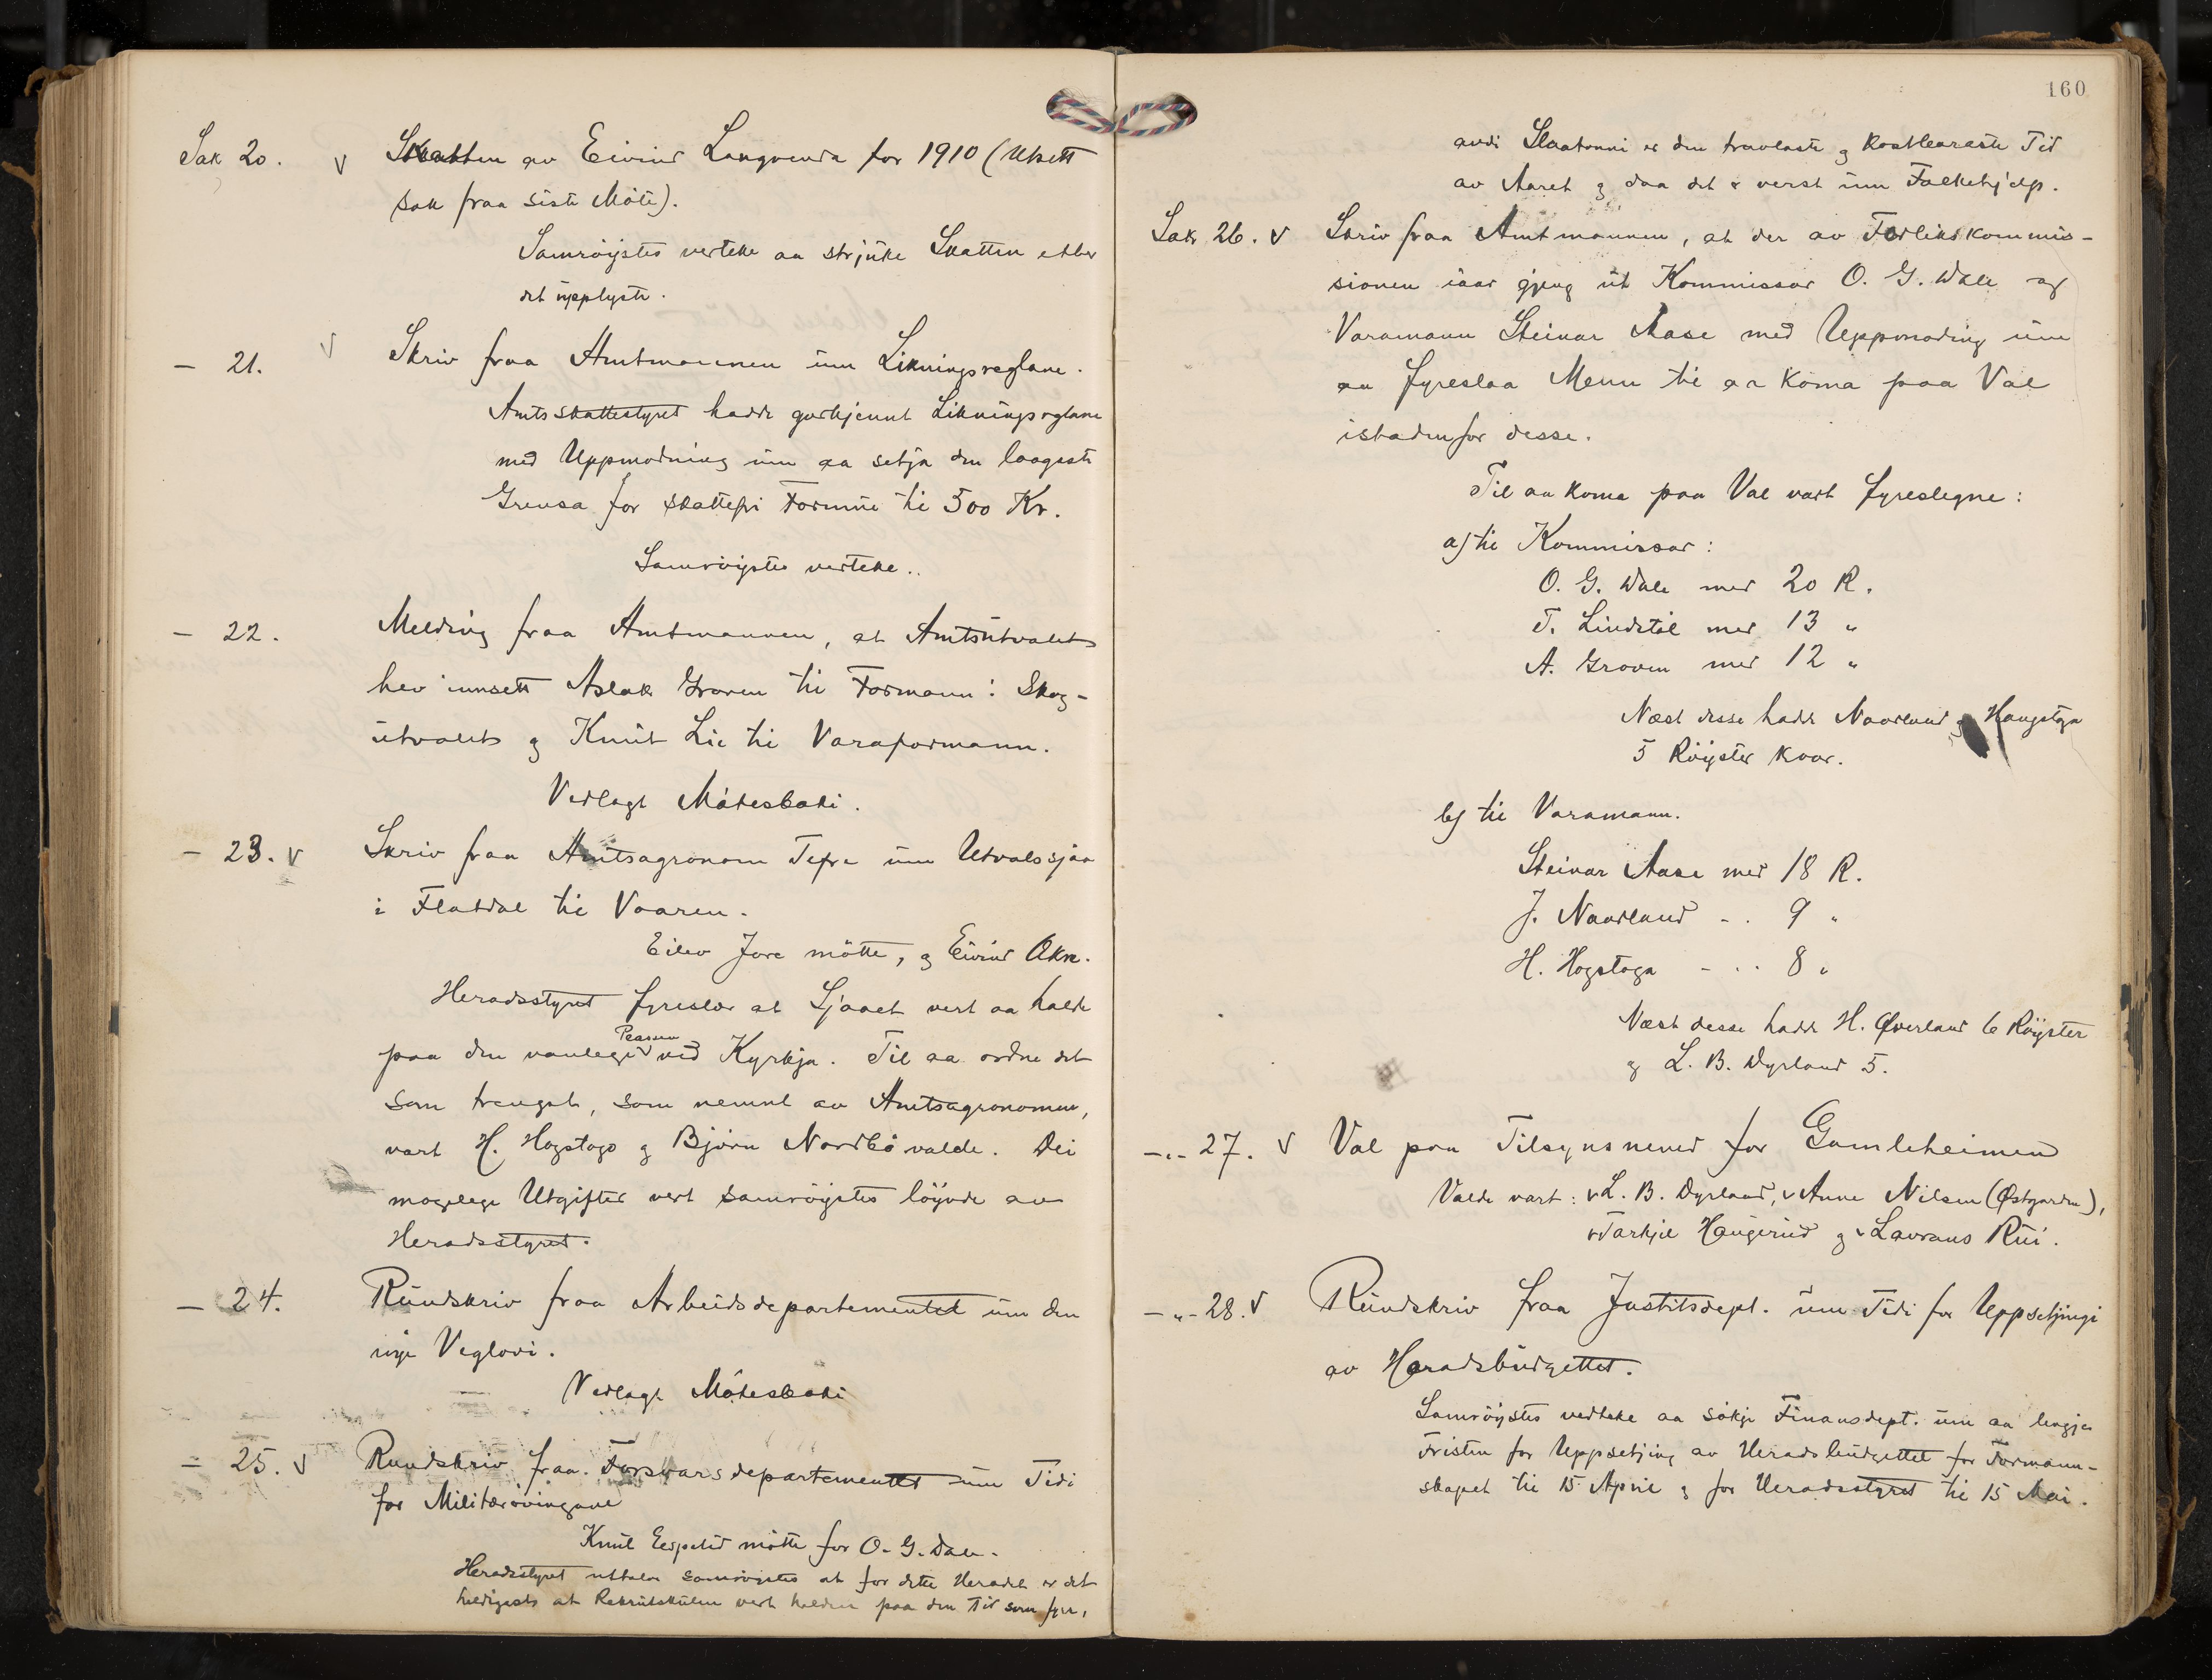 Sak 20. v Skatten av Eivind Langvenda for 1910 (Utsett
sak fraa siste Møte).
Samrøystes verteke aa strjuke Skatten etter
det upplyste.
— 21. v Skriv fraa Amtmannen um Likningsreglane.
Amtsskattestyret hadde godkjennt Likningsreglane
med Uppmodning um aa setja den laagste
Grensa for skattefri Formue til 500 Kr.
Samrøystes verteke.
— 22. Melding fraa Amtmannen, at Amtsutvalet
hev innsett Aslak Groven til Formann i Skog-
utvalet og Knut Lie til Varaformann.
Vedlagt Møtesboki.
— 23. v Skriv fraa Amtsagronom Tefre um Utvalssjaa
i Flatdal til Vaaren.
Eilev Jore møtte, og Eivind
Heradsstyret fyreslær at Sjaaet vert aa halde
Plassen
paa den vanlege v ved Kyrkja. Til aa ordne det
som trengst, som nemnt av Amtsagronomen,
vart H. Hogstogo og Bjørn Nordbø valde. Dei
mogelege Utgifter vert samrøystes løyvde av
Heradsstyret.
— 24. Rundskriv fraa Arbeidsdepartementet um den
nye Veglovi.
Vedlagt Møtesboki
— 25. v Rundskriv fraa Forsvarsdepartementet um Tidi
for Militærøvingane
Knut Espelid møtte for O. G. Dale.
Heradsstyret uttalar samrøystes at for dette Heradet er det
heldigaste at Rekrutskulen vert halden paa den Tid som fyrr,
160
andi Slaatonni er den travlaste og kostbaraste Tid
av Aaret og daa det er verst um Folkehjelp.
Sak 26. v Skriv fraa Amtmannen, at der av Forlikskommis-
sionen iaar gjeng ut Kommissar O. G. Dale og
Varamann Steinar Aase med Uppmoding um
aa fyreslaa Menn til aa koma paa Val
istadenfor desse.
Til aa koma paa Val vart fyreslegne:
a) til Kommissar:
O. G. Dale med 20 R.
T. Lindstøl med 13 "
A. Groven med 12 "
Næst desse hadde Naurland og Haugstoga
5 Røyster kvar.
b) til Varamann.
Steinar Aase med 18 R.
J. Naurland - . 9 "
H. Hogstoga - . . 8 "
Næst desse hadde H. Øverland 6 Røyster
og L. B. Dyrland 5.
—"— 27. v Val paa Tilsynsnemnd for Gamleheimen
Valde vart: v L. B. Dyrland, v Anne Nilsen (Østgarden),
v Tarkjil Haugerud og v Lavrans Rui.
—"— 28. v Rundskriv fraa Justitsdept. um Tidi for Uppsetjingi
av Heradsbudgettet.
Samrøystes vedteke aa søkje Finansdept. um aa lengje
Fristen for Uppsetjing av Heradsbudgettet for Formann-
skapet til 15 April og for Heradsstyret til 15 Mai.